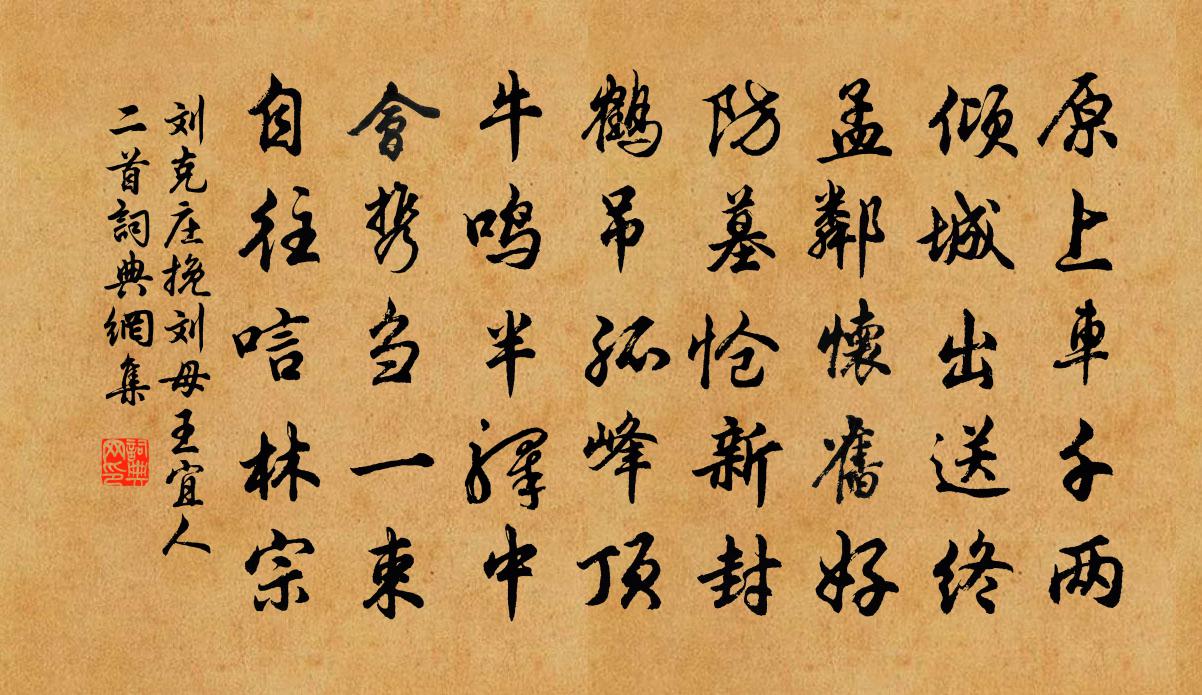 原上車千两
倾城出送终
孟鄰懷舊好
防墓怆新封
鹤吊孤峰顶
牛鸣半驛中
會携刍一束
自往唁林宗
刘克庄挽刘母王宜人
二首詞典網集
詞典网印